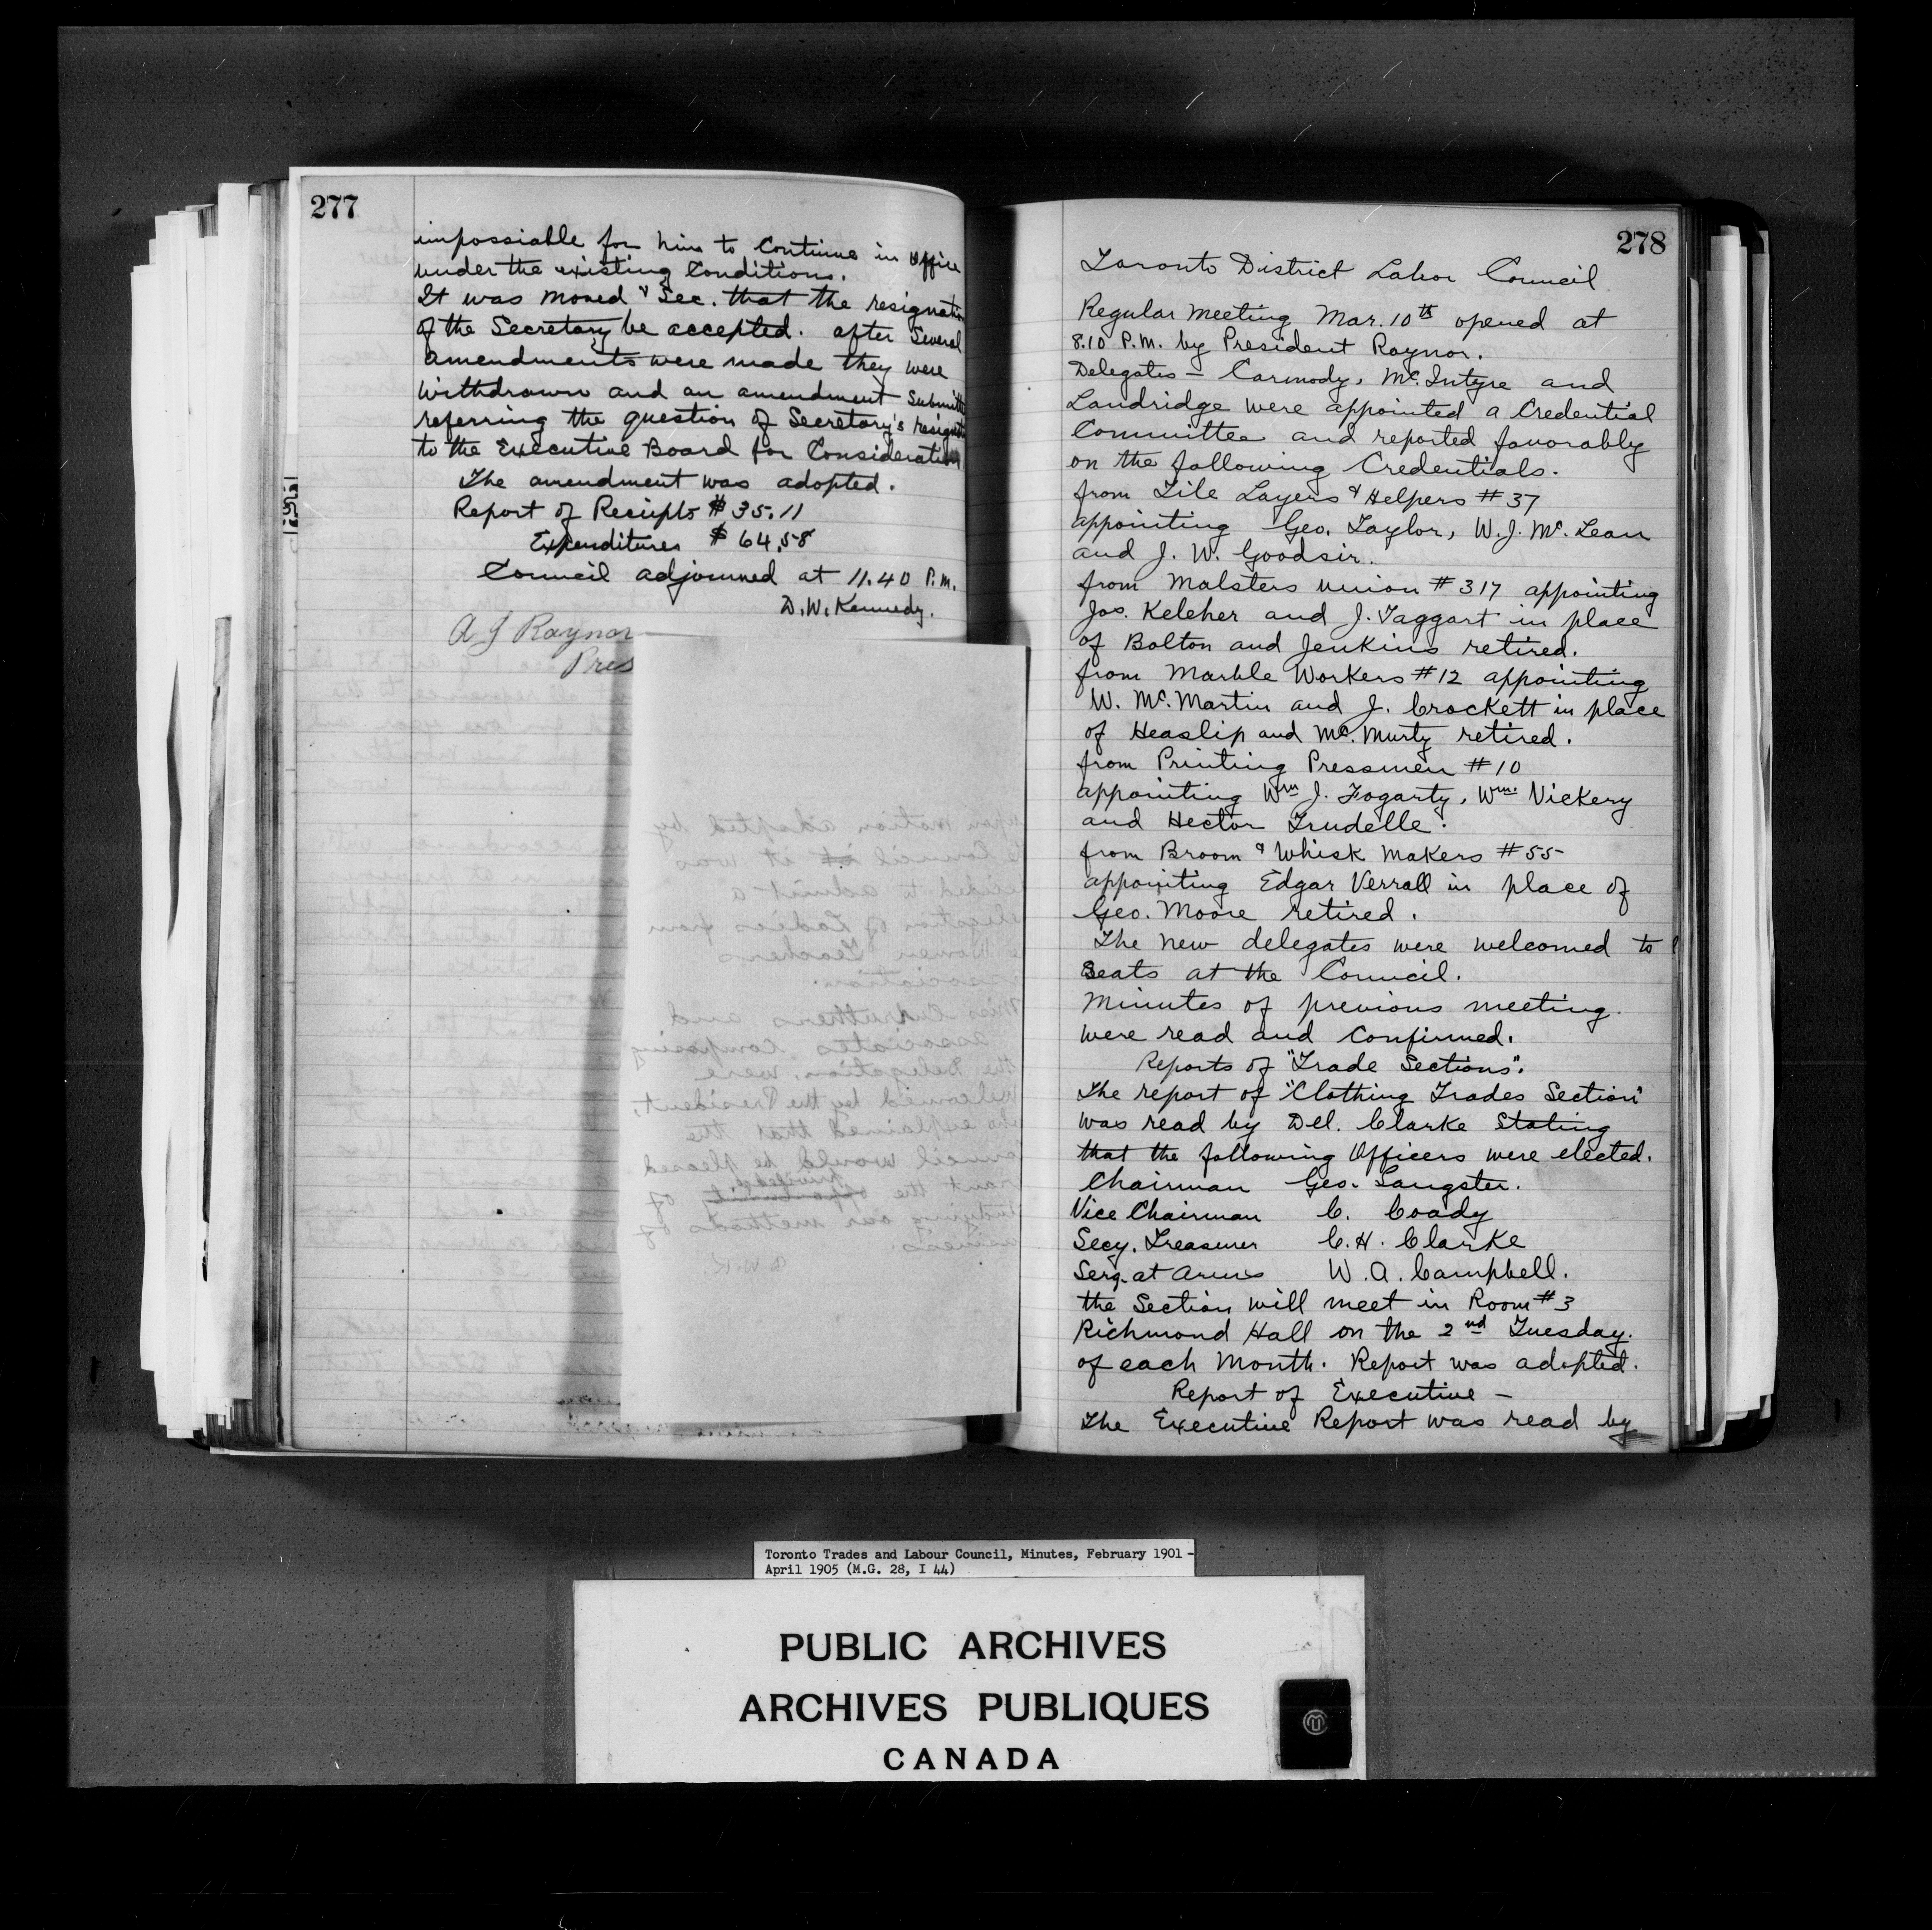 277
impossiable for him to Continue in Office
under the existing Conditions.
It was moved & Sec. that the resignation
of the Secretary be accepted. after Several
amendments were made they were
withdrawn and an amendment Submitted
referring the question of Secretary's resignation
to the Executive Board for Consideration
The amendment was adopted.
Report of Reciepts $35.11
Expenditures $64.58
Council adjourned at 11.40 P.M.
D.W. Kennedy.
A J Raynor
Pres
upon motion adopted by
Council it was
decided to admit a
delegation of Ladies from
Women Teachers
association.
Miss Carruthers and
associates composing
the Delegation, were
Welcomed by the President,
who explained that the
Council would be pleased
grant the privilege of
studying our methods of
business.
D.W.K.
278
Toronto District Labor Council
Regular meeting Mar. 10th opened at
8.10 P.M. by President Raynor.
Delegates - Carmody, McIntyre and
Landridge were appointed a Credential
Committee and reported favorably
on the following Credentials.
from Tile Layers & Helpers #37
appointing Geo. Taylor, W.J. McLean
and J. W. Goodsir.
from Malsters union #317 appointing
Jos. Keleher and J. Taggart in place
of Bolton and Jenkins retired.
from Marble Workers #12 appointing
W. McMartin and J. Crockett in place
of Heaslip and McMurty retired.
from Printing Pressmen #10
appointing Wm J. Fogarty, Wm. Vickery
and Hector Trudelle.
from Broom & Whisk Makers #55
appointing Edgar Verrall in place of
Geo. Moore retired.
The new delegates were welcomed to
Seats at the Council.
Minutes of previous meeting
were read and Confirmed.
Reports of "Trade Sections".
The report of "Clothing Trades Section"
was read by Del. Clarke Stating
that the following Officers were elected.
Chairman Geo. Sangster.
Vice Chairman C. Coady
Secy. Treasurer C.H. Clarke
Serg. at Arms W.A. Campbell.
the Section will meet in Room #3
Richmond Hall on the 2nd Tuesday.
of each Month. Report was adopted.
Report of Executive -
The Executive Report was read by
Toronto Trades and Labour Council, Minutes, February 1901 -
April 1905 (M.G. 28, I 44)
PUBLIC ARCHIVES
ARCHIVES PUBLIQUES
CANADA